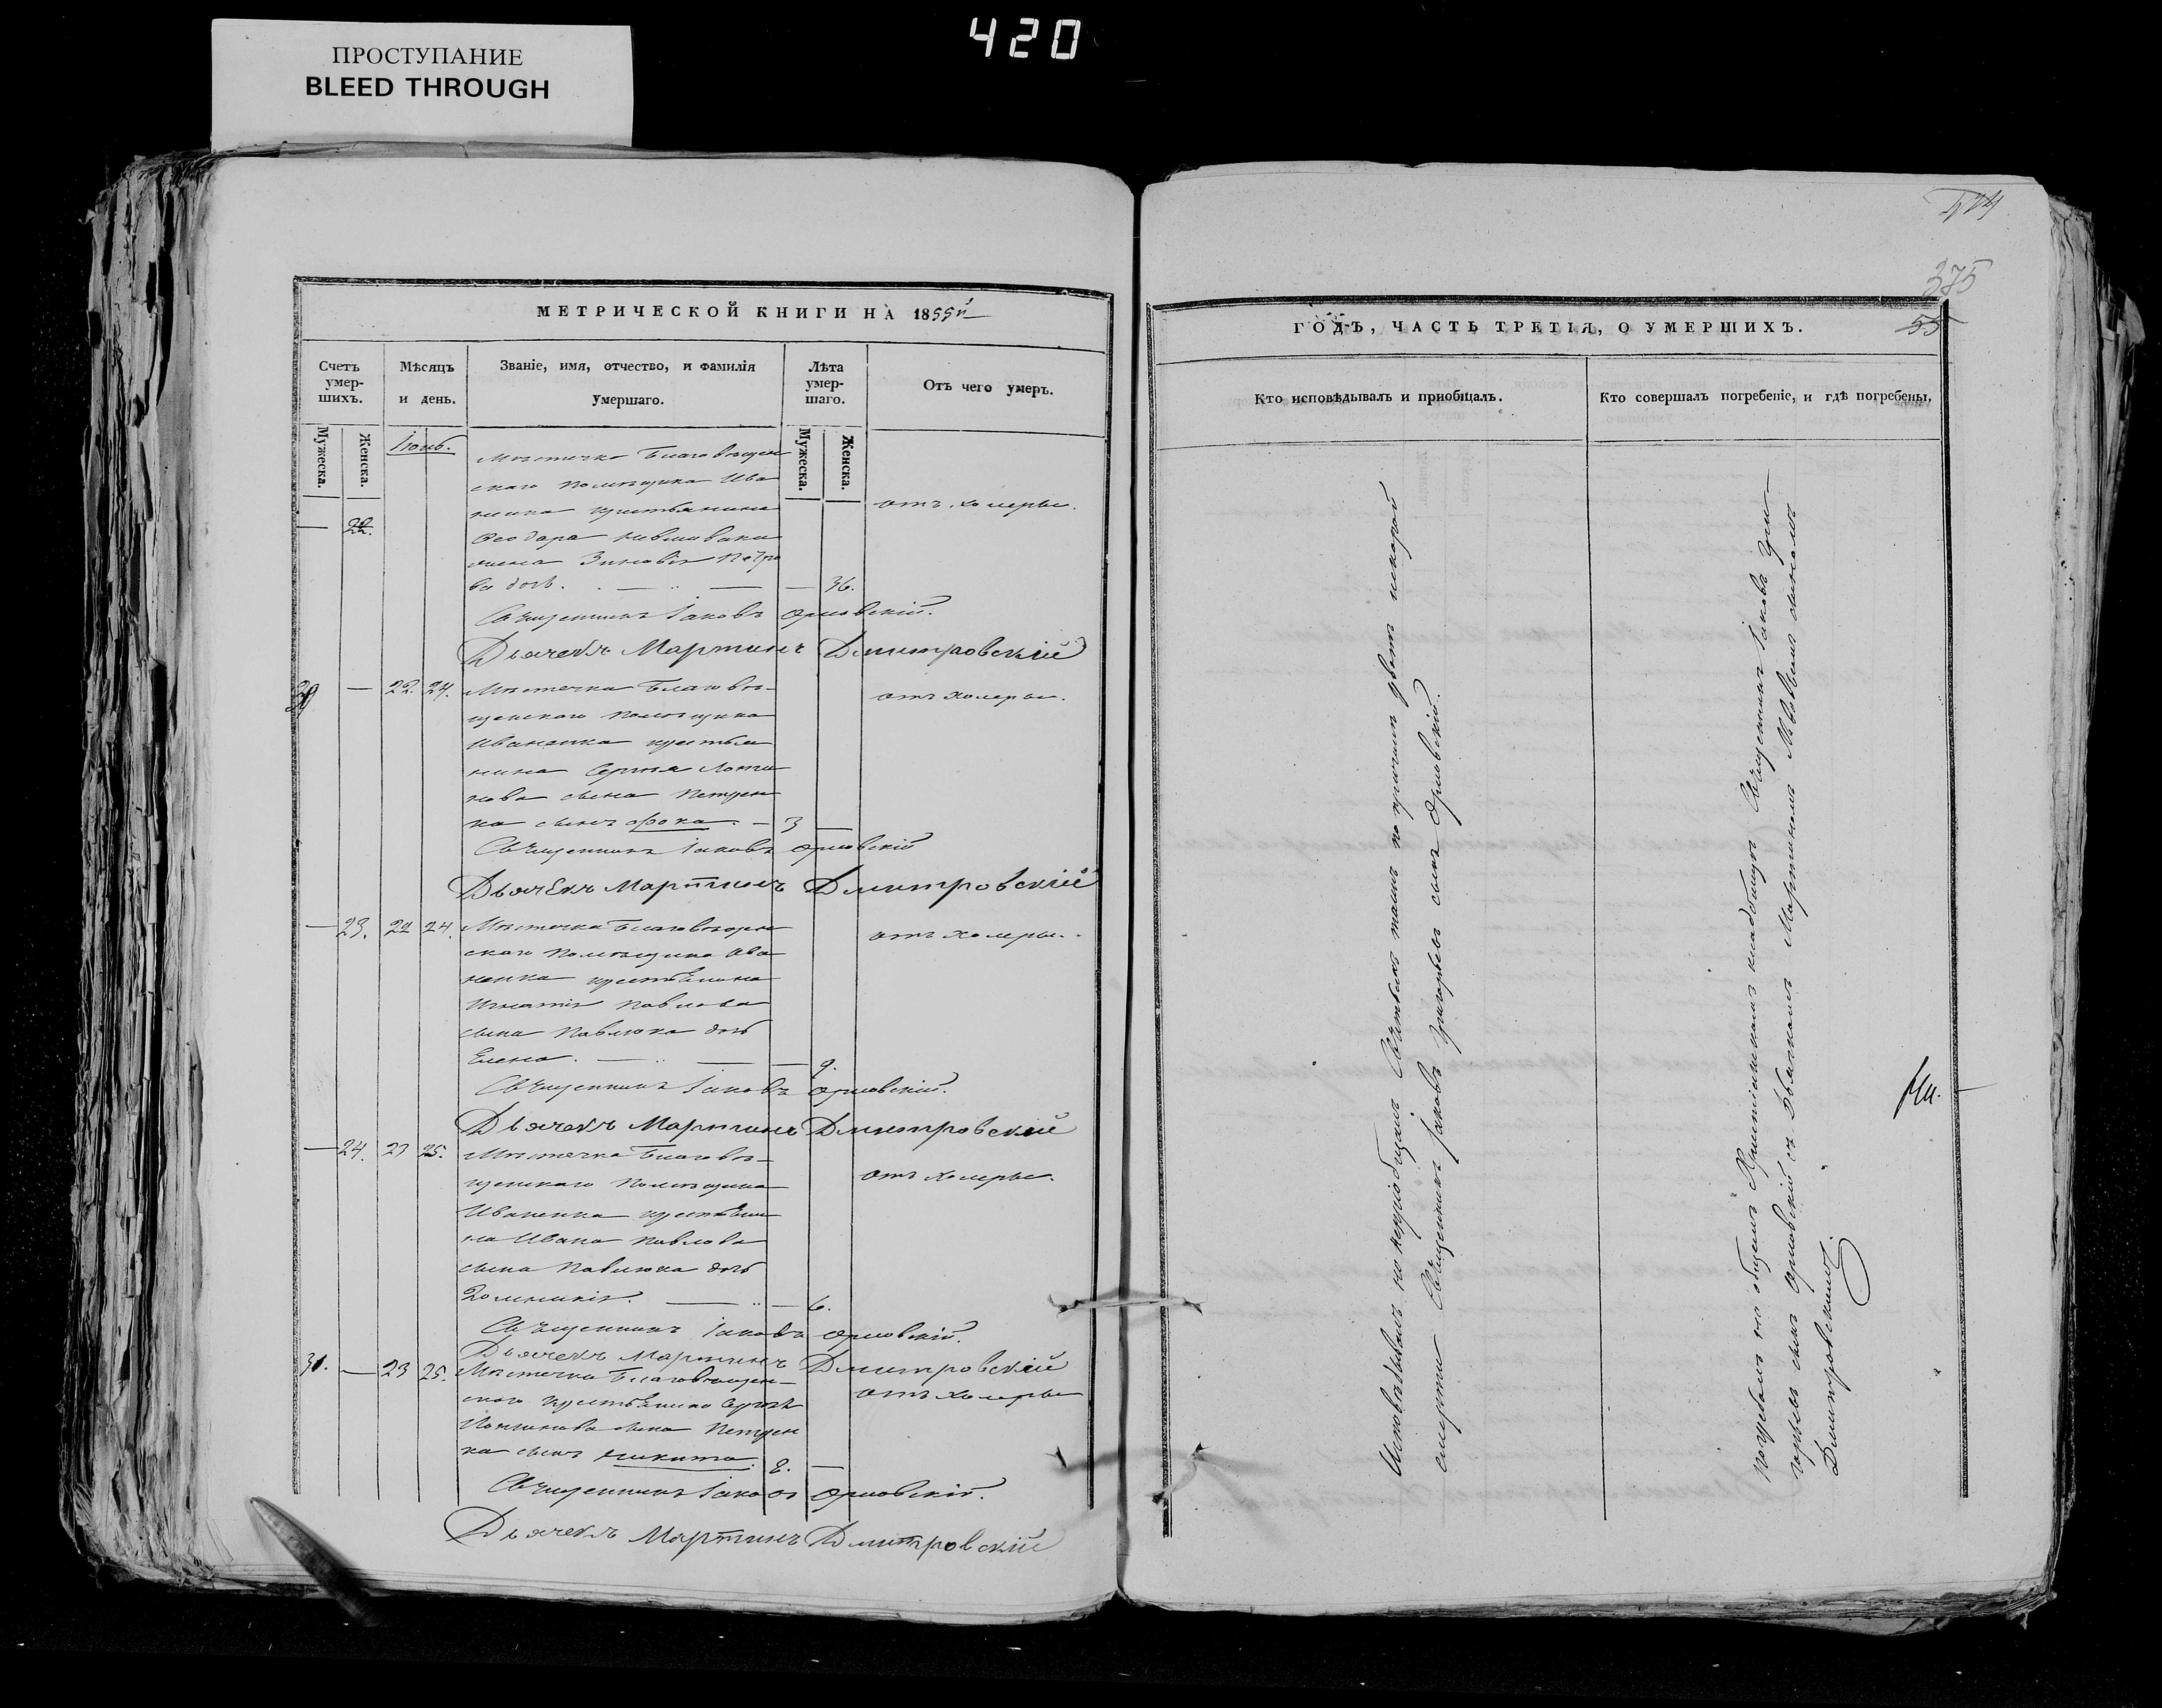 ПРОСТУПАНИЕ
BLEED THROUGH
420
МЕТРИЧЕСКОЙ КНИГИ НА 1855й
Счетъ умер-шихъ.
Мѣсяцъ и день.
Званіе, имя, отчество, и фамилія умершаго.
Лѣта умер-шаго.
Отъ чего умеръ.
Мужеска.
Женска.
Мужеска.
Женска.
Іюнь.
Мѣстечка Благовѣщен
скаго помѣщика Ива
ненка крестьянина
Феодора
жена Зиновія Петро
ва дочь. 36.
22.
отъ холеры.
Священникъ Іаковъ Орловскій.
Дьячекъ Мартинъ Дмитровскій
29 — 22. 24. Мѣстечка Благовѣ-
щенскаго помѣщика
Иваненка крестья
нина Сергѣя Логи
нова сына Петрен
ка сынъ Фока. — 3 —
отъ холеры.
Священникъ Іаковъ Орловскій
Дьячекъ Мартинъ Дмитровскій
— 23. 22 24. Мѣстечка Благовѣщен
скаго помѣщика Ива
ненка крестьянина
Игнатія Павлова
сына Павлюка дочь
Елена. — 9.
отъ холеры.
Священникъ Іаковъ Орловскій.
Дьячекъ Мартинъ Дмитровскій
— 24. 23 25. Мѣстечка Благовѣ-
щенскаго помѣщика
Иваненка крестьяни
на Ивана Павлова
сына Павлюка дочь
Домникія. — 6.
отъ холеры.
Священникъ Іаковъ Орловскій.
Дьячекъ Мартинъ Дмитровскій
30. — 23 25. Мѣстечка Благовѣщен-
скаго крестьянина Сергѣя
Логинова сына Петрен
ка сынъ Никита. 2. —
отъ холеры
Священникъ Іаковъ Орловскій.
Дьячекъ Мартинъ Дмитровскій
375
55
ГОДЪ, ЧАСТЬ ТРЕТІЯ, О УМЕРШИХЪ.
Кто исповѣдывалъ и приобщалъ.
Кто совершалъ погребеніе, и гдѣ погребены.
Исповѣдывалъ но не пріобщалъ Святыхъ таинъ по причинѣ рвотъ скорой
смерти Священникъ Іаковъ Григорьевъ сынъ Орловскій.
Погребалъ на общемъ Христіанскомъ кладбищѣ Священникъ Іаковъ Гри-
горьевъ сынъ Орловскій съ дьячкомъ Мартиномъ
Дмитровскимъ.